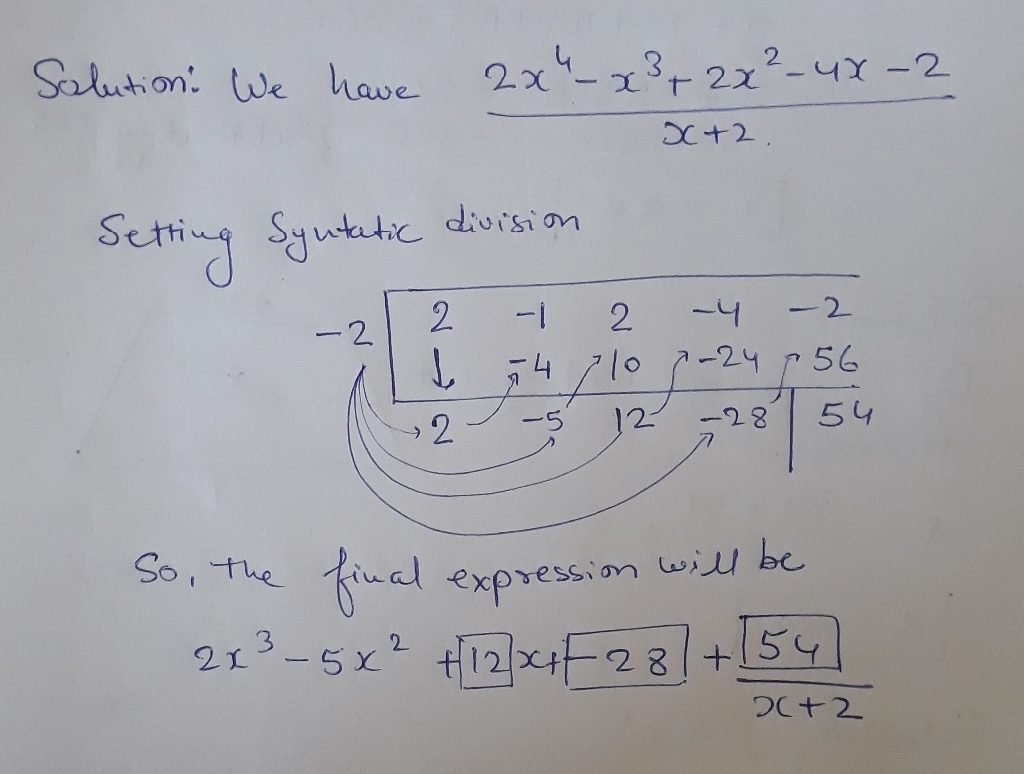 Solution: We have 2x⁴ - x³ + 2x² - 4x - 2
x + 2.
Setting Syntatic division
-2 2 -1 2 -4 -2
↓ -4 10 -24 56
2 -5 12 -28 54
So, the final expression will be
2x³ - 5x² + 12x + -28 + 54
x + 2